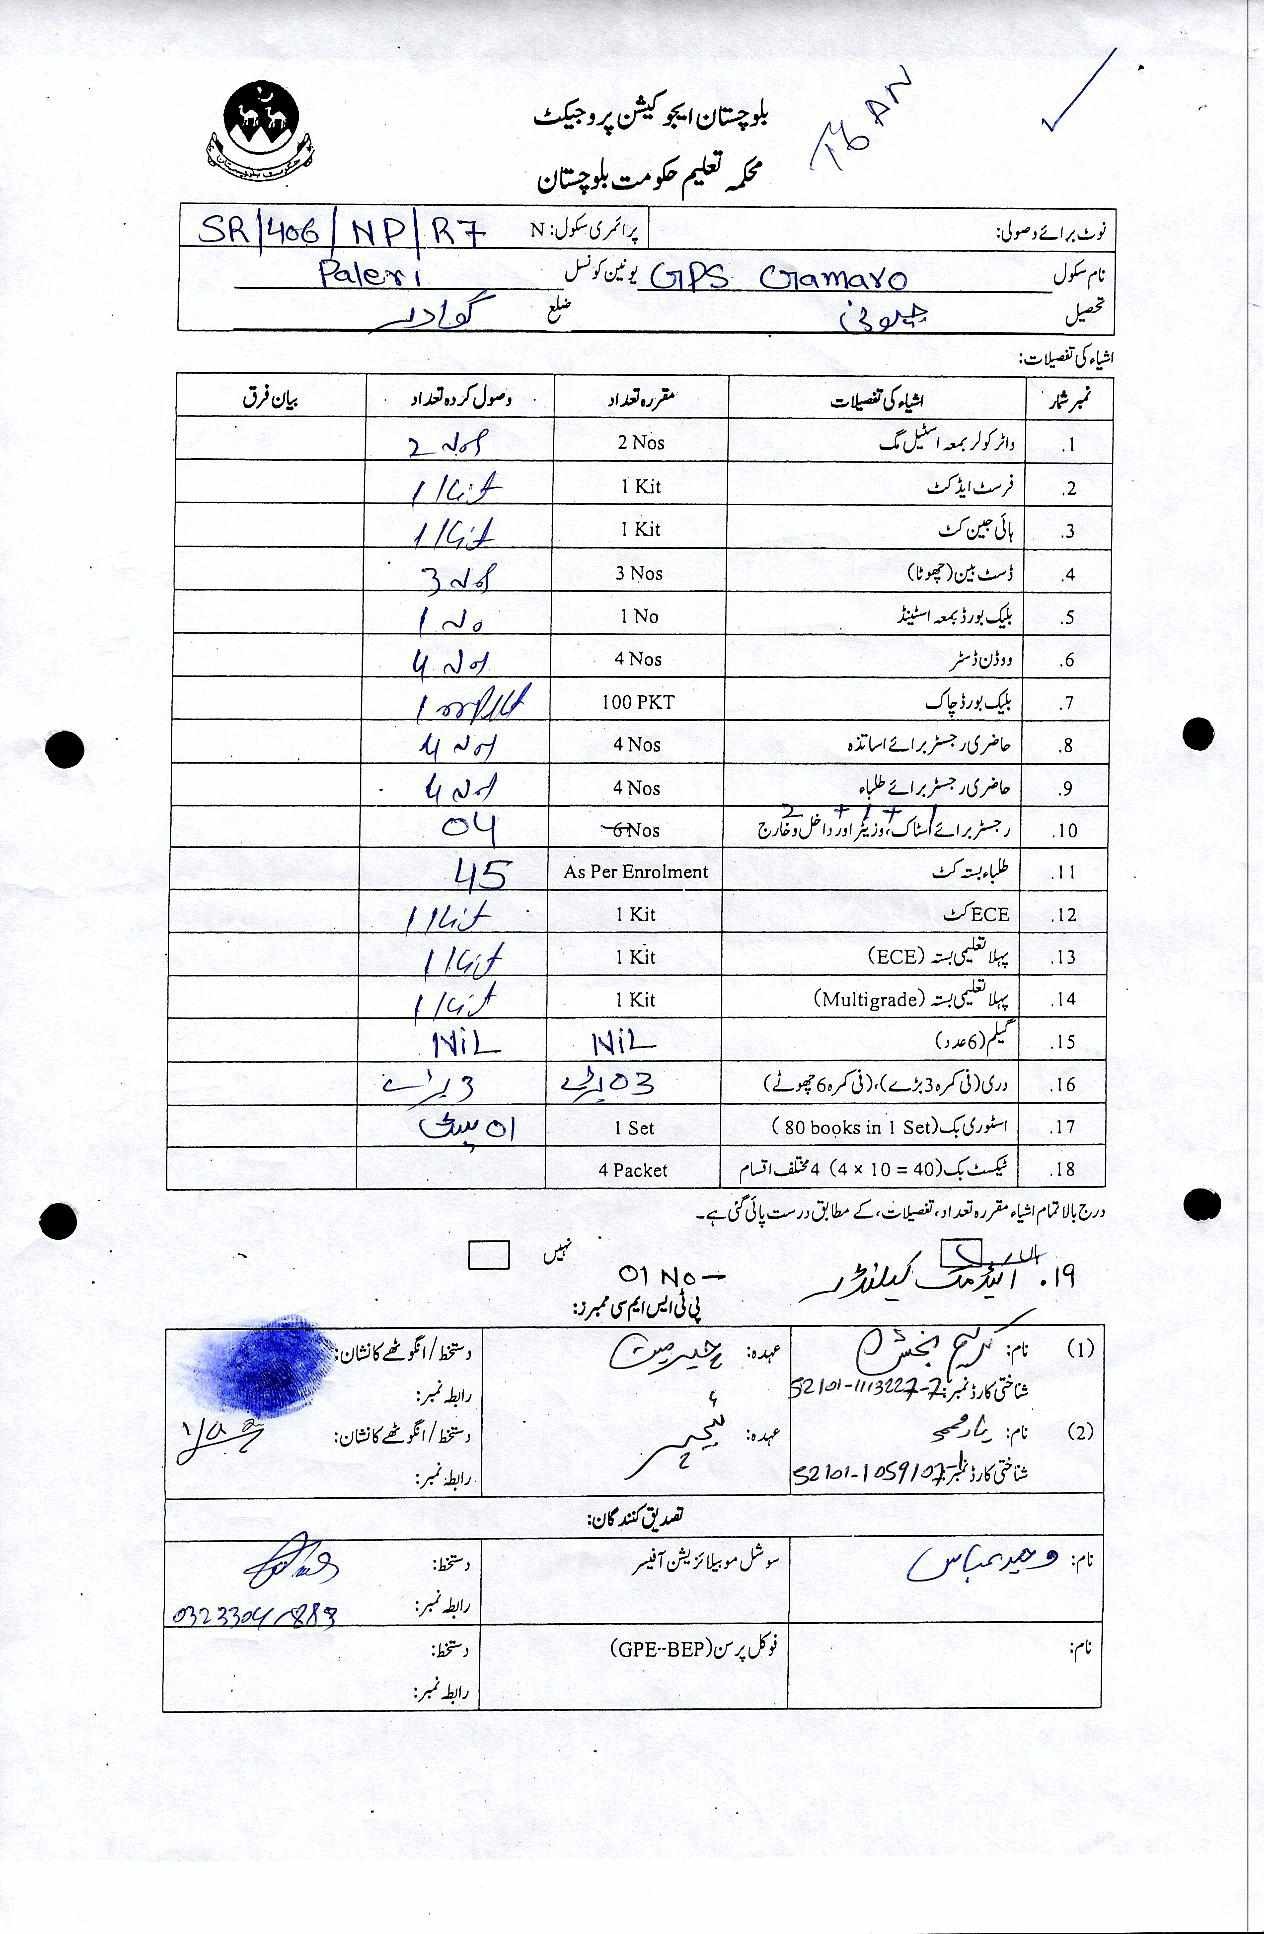 بلوچستان ایجوکیشن پروجیکٹ
محکمہ تعلیم حکومت بلوچستان
نوٹ برائے وصولی: پرائمری سکول: N SR/406/NP/R7
نام سکول GPS Gamaro یونین کونسل Paleri
تحصیل جیونی ضلع گوادر
اشیاء کی تفصیلات:
نمبر شمار اشیاء کی تفصیلات مقررہ تعداد وصول کردہ تعداد بیان فرق
1. واٹر کولر بمعہ اسٹیل مگ 2 Nos 2 Nos
2. فرسٹ ایڈ کٹ 1 Kit 1 Kit
3. ہائی جین کٹ 1 Kit 1 Kit
4. ڈسٹ بین (چھوٹا) 3 Nos 3 Nos
5. بلیک بورڈ بمعہ اسٹینڈ 1 No 1 No
6. ووڈن ڈسٹر 4 Nos 4 Nos
7. بلیک بورڈ چاک 100 PKT 100 PKT
8. حاضری رجسٹر برائے اساتذہ 4 Nos 4 Nos
9. حاضری رجسٹر برائے طلباء 4 Nos 4 Nos
2 + 1 + 1
10. رجسٹر برائے اسٹاک، وزیٹر اور داخل و خارج 6 Nos 04
11. طلباء بستہ کٹ As Per Enrolment 45
12. ECE کٹ 1 Kit 1 Kit
13. پہلا تعلیمی بستہ (ECE) 1 Kit 1 Kit
14. پہلا تعلیمی بستہ (Multigrade) 1 Kit 1 Kit
15. گیلم (6 عدد) NiL NiL
16. دری (فی کمرہ 3 بڑے)، (فی کمرہ 6 چھوٹے) 03 بڑے 3 بڑے
17. اسٹوری بک (80 books in 1 Set) 1 Set 01 سیٹ
18. ٹیکسٹ بک (4 × 10 = 40) 4 مختلف اقسام 4 Packet
درج بالا تمام اشیاء مقررہ تعداد، تفصیلات، کے مطابق درست پائی گئی ہے۔
ہاں نہیں
19. کیلنڈر 01 No
پی ٹی ایس ایم سی ممبرز:
(1) نام: کریم بخش عہدہ: چیرمین دستخط/انگوٹھے کا نشان:
شناختی کارڈ نمبر: 52101-1113227-7 رابطہ نمبر:
(2) نام: یار محمد عہدہ: ٹیچر دستخط/انگوٹھے کا نشان:
شناختی کارڈ نمبر: 52101-1059107-1 رابطہ نمبر:
تصدیق کنندگان:
نام: وحید عباس سوشل موبیلائزیشن آفیسر دستخط:
رابطہ نمبر:
نام: فوکل پرسن (GPE--BEP) دستخط:
رابطہ نمبر: